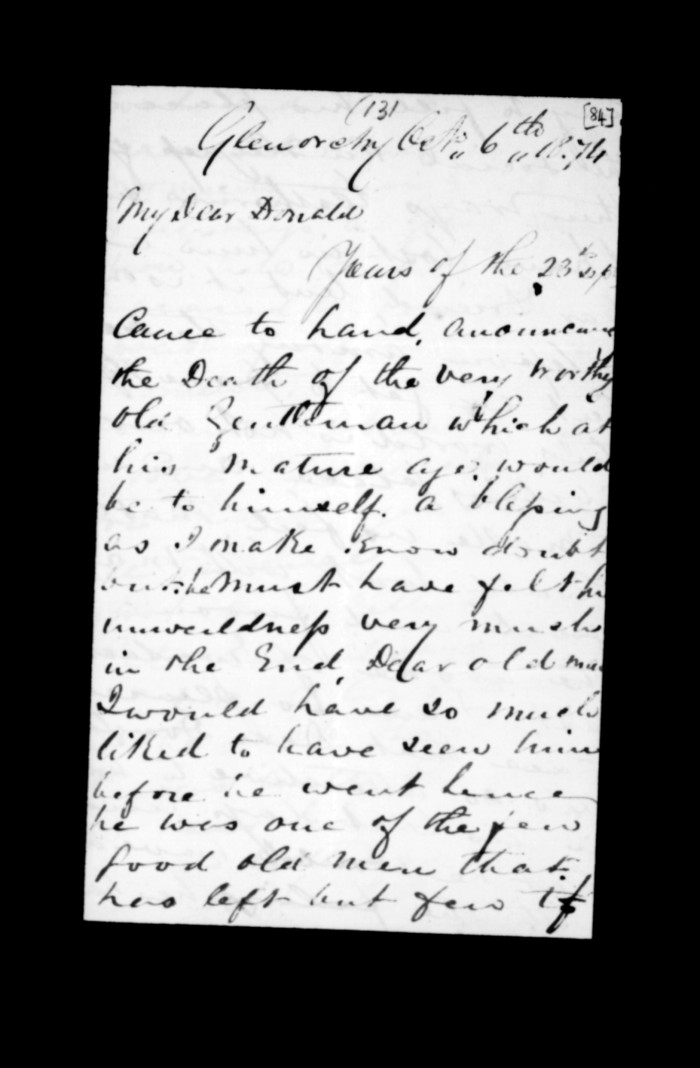 (13)
[84]
Glenorchy Octr 6th 1874
My Dear Donald
Yours of the 23d Sep
Came to hand, anouncing
the Death of the very worthy
old Gentleman which at
his mature age would
be to himself a blessing
as I make know doubt
but he must have felt his
unweildness very much
in the End, Dear old man
I would have so much
liked to have seen him
before he went hence
he was one of the few
good old men that
has left but few